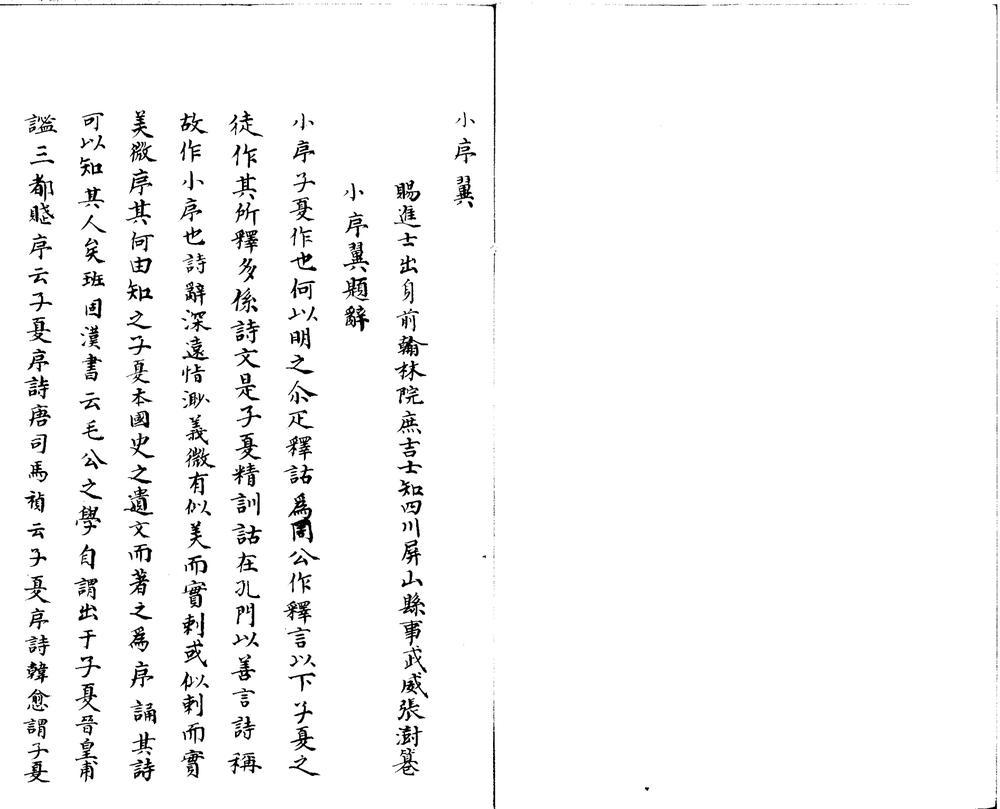 小序翼
賜進士出身前翰林院庶吉士知四川屏山縣事武威張澍篹
小序翼題辭
小序子夏作也何以明之尒疋釋詁爲周公作釋言以下子夏之
徒作其所釋多係詩文是子夏精訓詁在孔門以善言詩稱
故作小序也詩辭深遠情渺義微有似美而實刺或似刺而實
美微序其何由知之子夏本國史之遺文而著之爲序誦其詩
可以知其人矣班固漢書云毛公之學自謂出于子夏晉皇甫
謐三都賦序云子夏序詩唐司馬禎云子夏序詩韓愈謂子夏